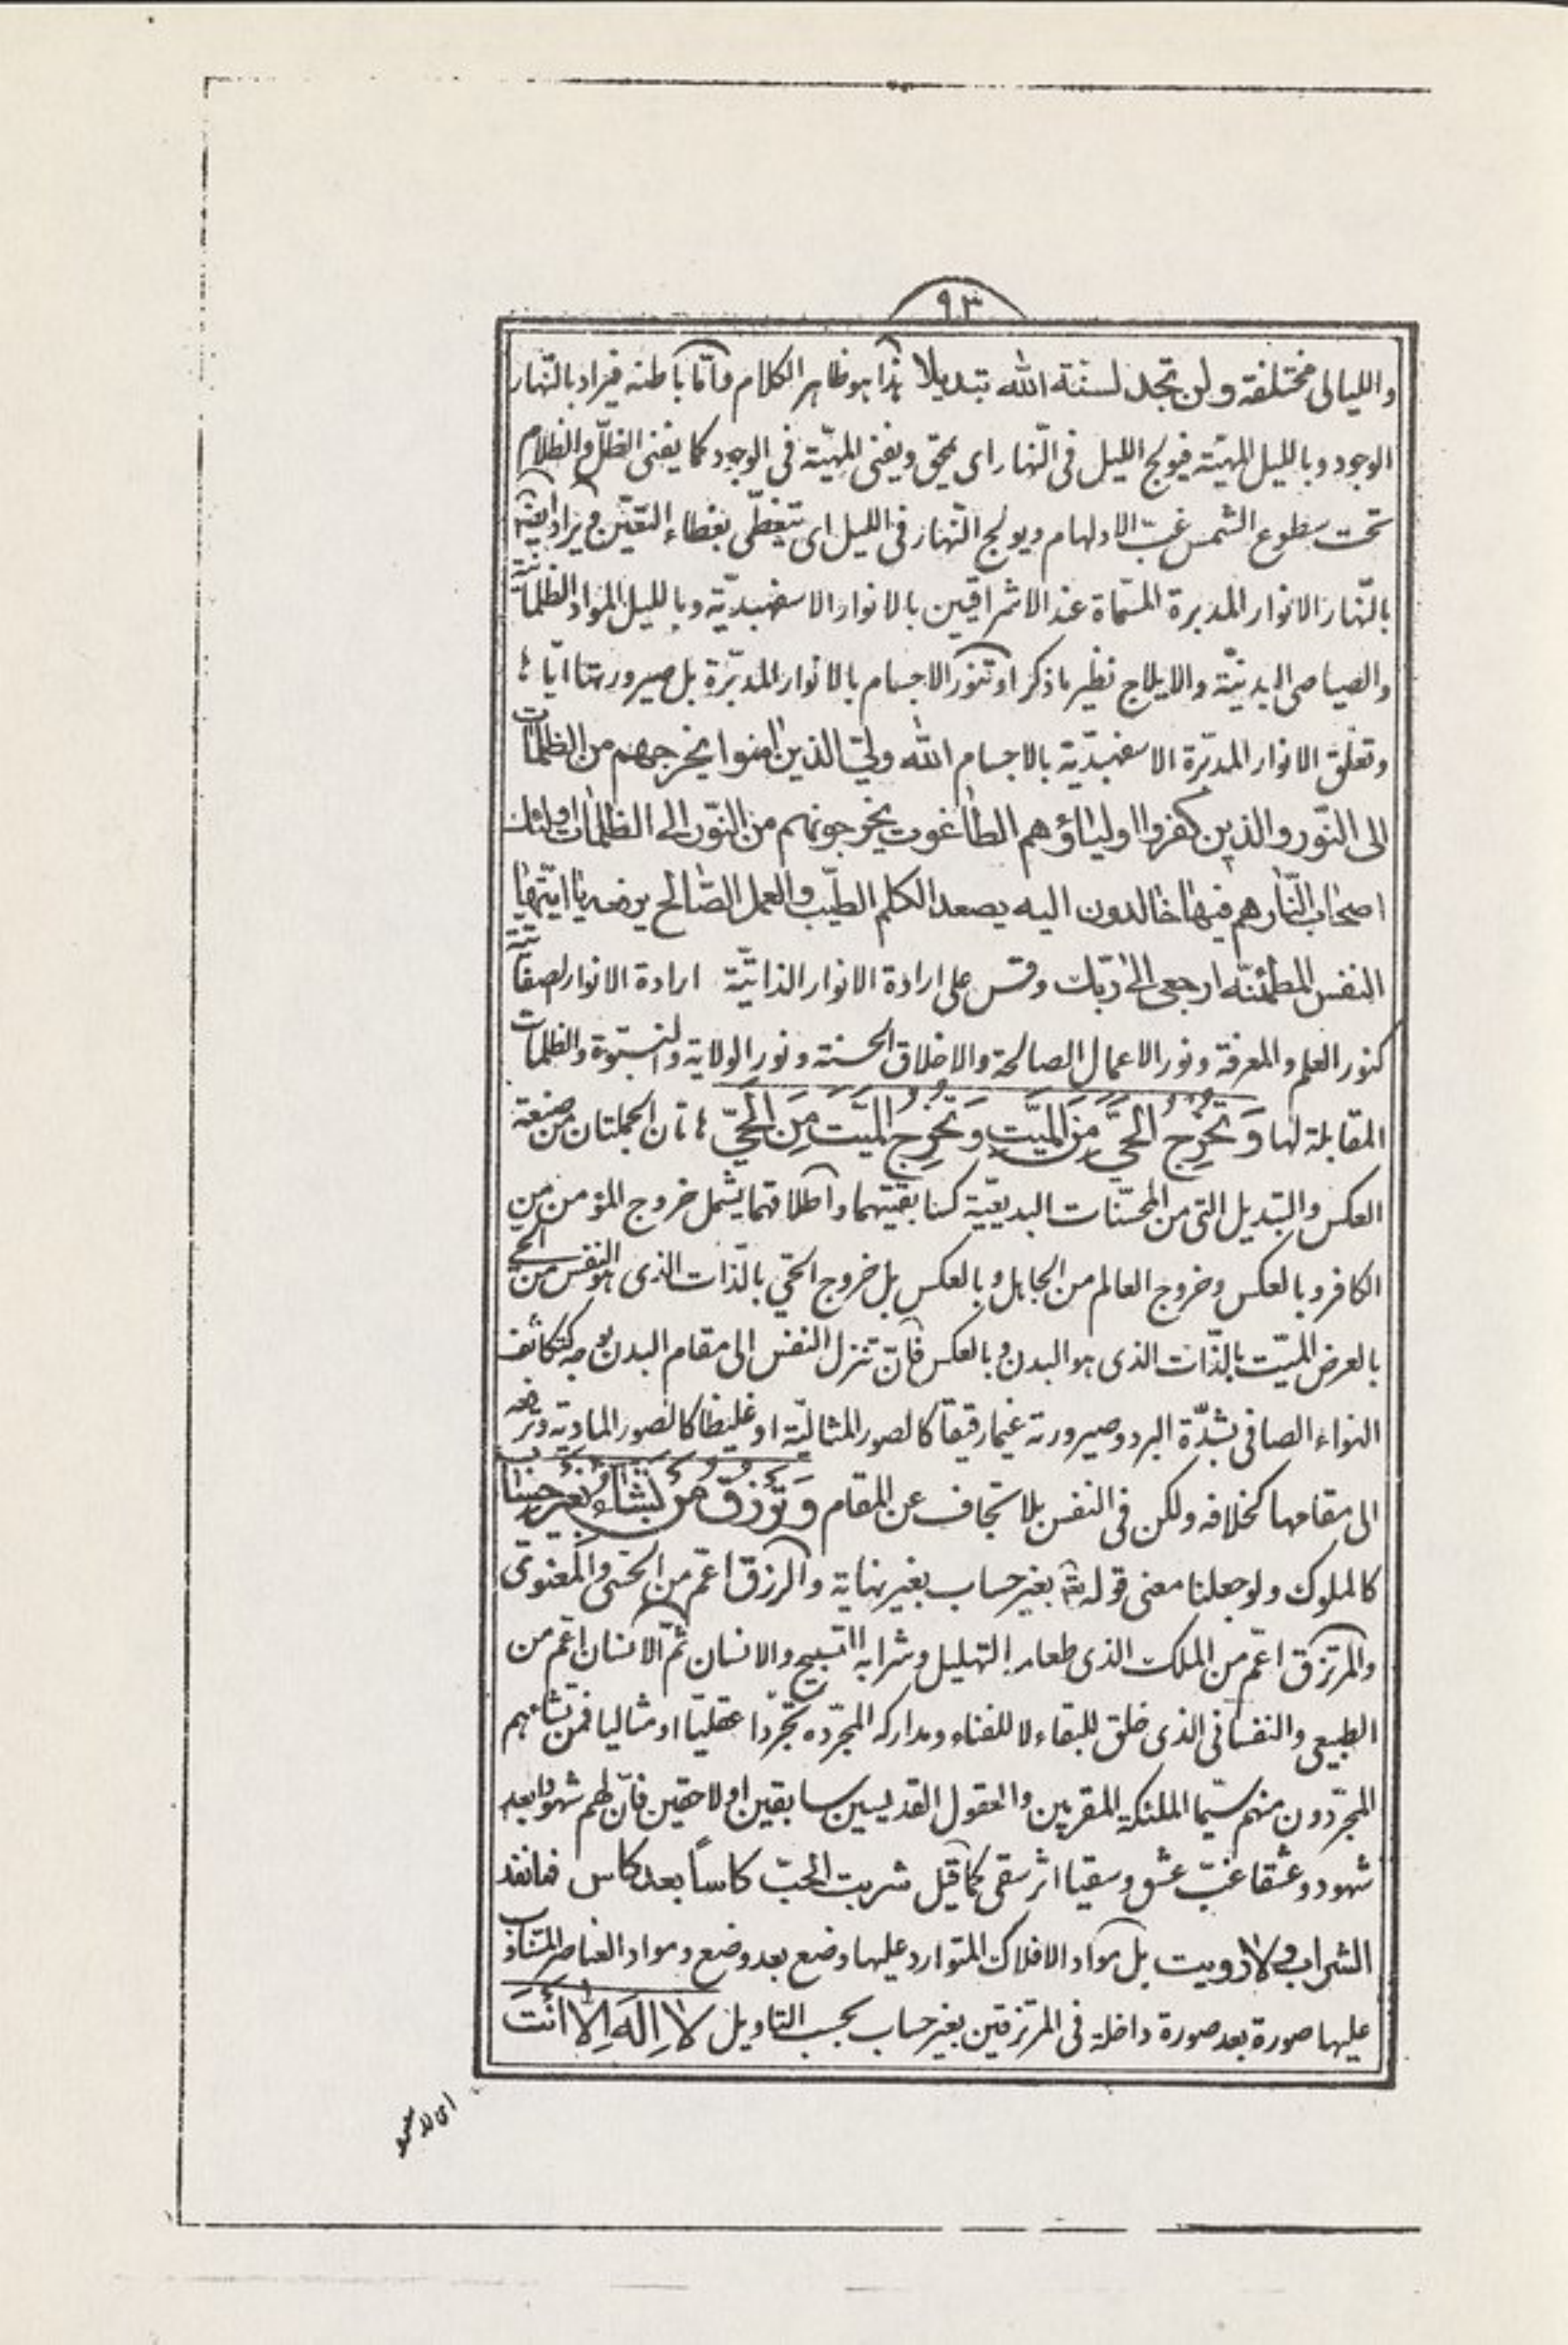 ٩٣
والليالى مختلفة ولن تجد لسنة الله تبديلا هذا هو ظاهر الكلام وامّا باطنه فيراد بالنّهار
الوجود وبالليل المهيّة فيولج الليل فى النّهار اى يمحق ويفنى المهيّة فى الوجود كما يفنى الظلّ والظلام
تحت سطوع الشمس غبّ الادلهام ويولج النّهار فى الليل اى يتغطّى بغطاء التعيّن ويراد ايضا
بالنّهار الانوار المدبرة المسمّاة عند الاشراقيين بالانوار الاسفهبديّة وبالليل المواد الظلمانية
والصياصى البدنيّة والايلاج نظير ما ذكر او تنوّر الاجسام بالانوار المدبّرة بل صيرورتها ايّاها
وتعلّق الانوار المدبّرة الاسفهبديّة بالاجسام الله ولىّ الذين امنوا يخرجهم من الظلمات
الى النّور والذين كفروا اولياؤهم الطاغوت يخرجونهم من النّور الى الظلمات اولئك
اصحاب النّار هم فيها خالدون اليه يصعد الكلم الطيّب والعمل الصّالح يرفعه يا ايّتها
النفس المطمئنّة ارجعى الى ربّك وقس على ارادة الانوار الذاتيّة ارادة الانوار الصفاتيّة
كنور العلم والمعرفة ونور الاعمال الصالحة والاخلاق الحسنة ونور الولاية والنبّوة والظلمات
المقابلة لها وَتُخْرِجُ الْحَيَّ مِنَ الْمَيِّتِ وَتُخْرِجُ الْمَيِّتَ مِنَ الْحَيِّ هاتان الجملتان من صنعة
العكس والتبديل التى من المحسّنات البديعيّة كسابقتيهما واطلاقهما يشمل خروج المؤمن من
الكافر وبالعكس وخروج العالم من الجاهل وبالعكس بل خروج الحىّ بالذّات الذى هو النفس من الحى
بالعرض الميّت بالذّات الذى هو البدن وبالعكس فانّ تنزل النفس الى مقام البدن بوجه كتكاثف
الهواء الصافى بشدّة البرد وصيرورته غيما رقيقا كالصور المثاليّة او غليظا كالصور الماديّة وترفعه
الى مقامها كخلافه ولكن فى النفس بلا تجاف عن المقام وَتَرْزُقُ مَنْ تَشَاءُ بِغَيْرِ حِسَابٍ
كالملوك ولو جعلنا معنى قوله تعالى بغير حساب بغير نهاية والرزق اعمّ من الحسّى والمعنوىّ
والمرتزق اعمّ من الملك الذى طعامه التهليل وشرابه التسبيح والانسان ثمّ الانسان اعمّ من
الطبيعى والنفسانى الذى خلق للبقاء لا للفناء ومداركه المجرّده تجرّدا عقليّا او مثاليا فمن تشاء هم
المجرّدون منهم سيّما الملئكة المقربين والعقول القديسين سابقين او لاحقين فانّ لهم شهودا بعد
شهود وعشقا غبّ عشق وسقيا اثر سقى كما قيل شربت الحبّ كاساً بعد كاس فما نفد
الشراب ولا رويت بل مواد الافلاك المتوارد عليها وضع بعد وضع ومواد العناصر المتناوب
عليها صورة بعد صورة داخلة فى المرتزقين بغير حساب بحسب التاويل لا اِلهَ اِلاّ اَنْتَ